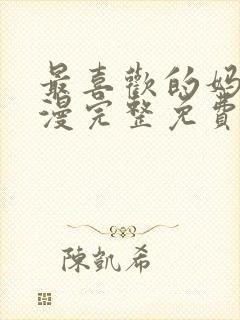 最喜歡的媽
漫完整免費
陳凱希